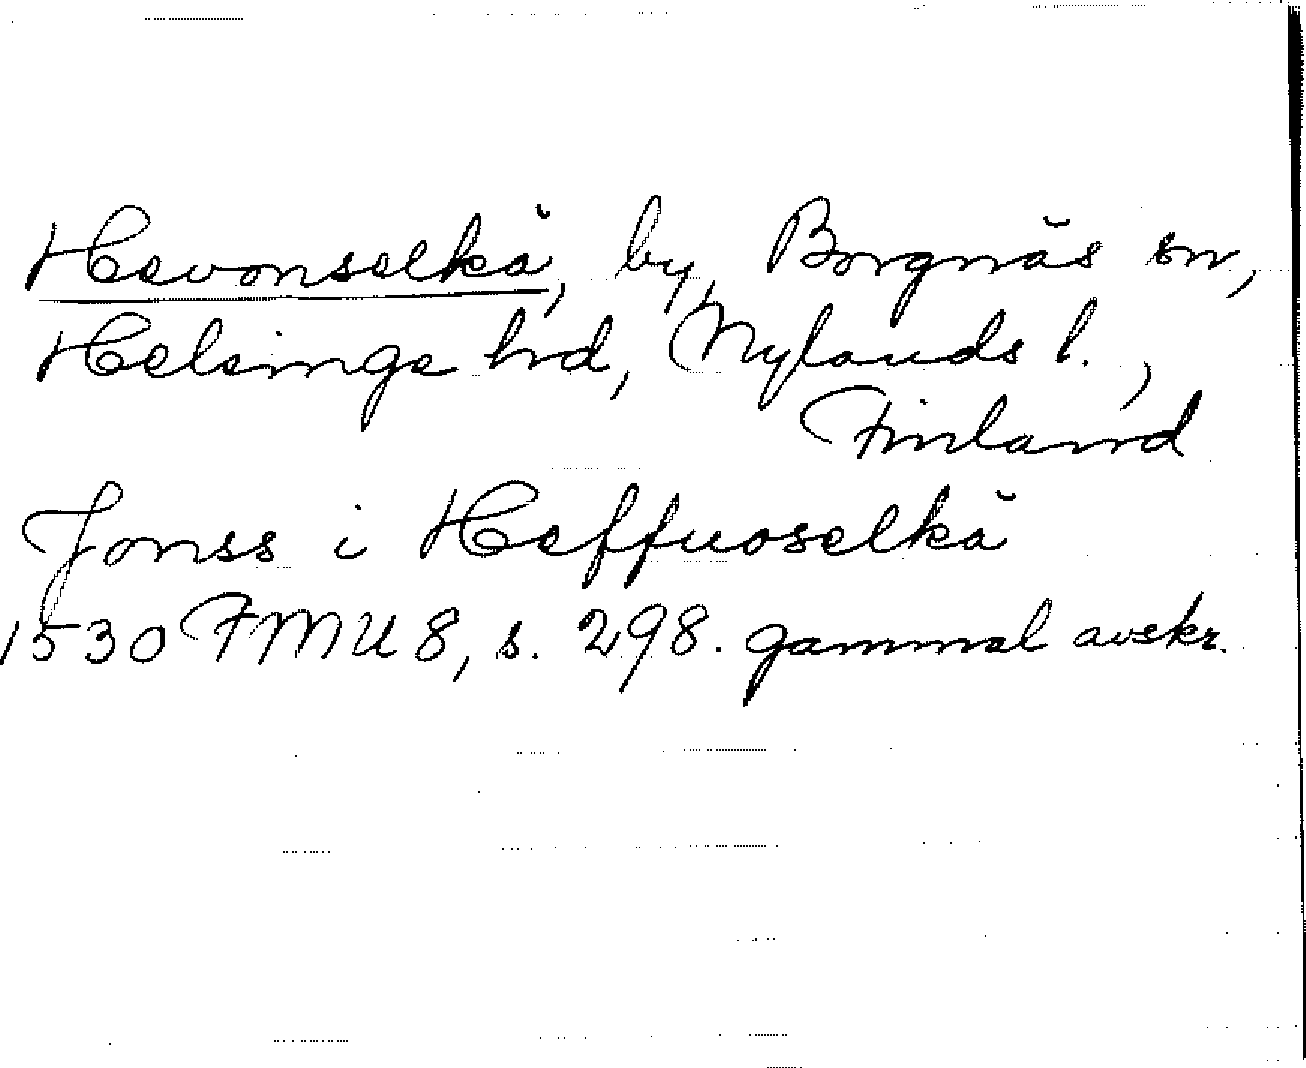 Hevonselkä, by, Borgnäs sn,
Helsinge hd, Nylands l.,
Finland
Jonss i Heffuoselkä
1530 FMU 8, s. 298. gammal avskr.